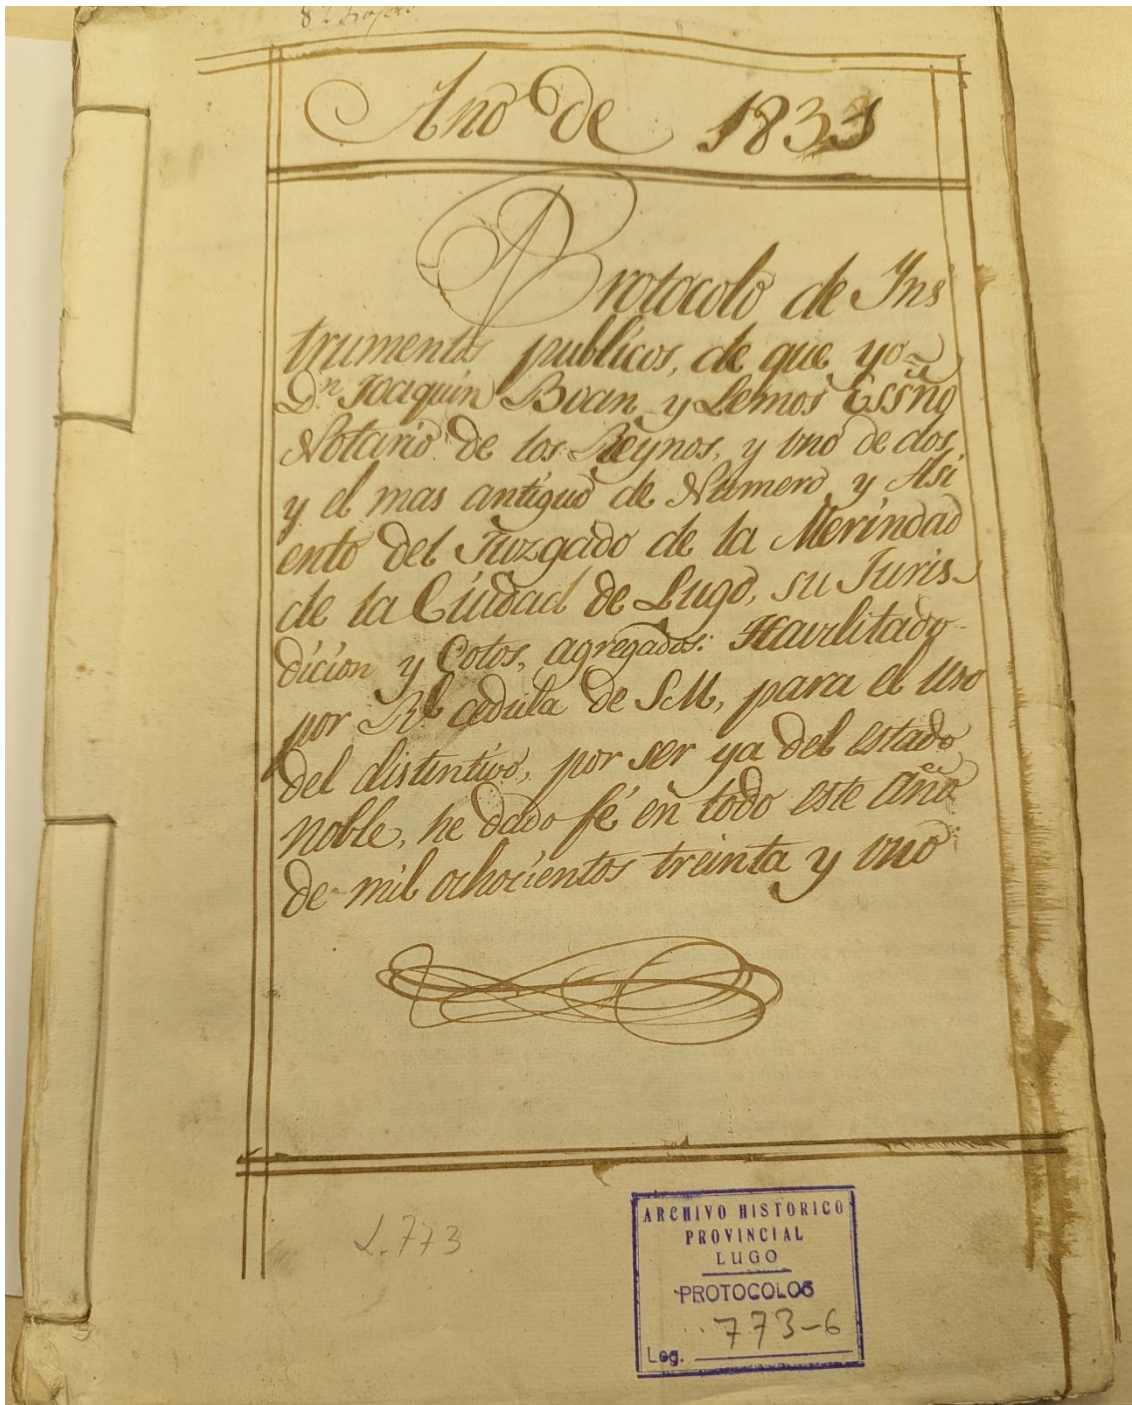 Año de 1831
Protocolo de Ins
trumentos publicos, de que yo
D.n Joaquin Boan y Lemos Essño
Notario de los Reynos, y uno de dos,
y el mas antiguo de Numero y Asi
ento del Juzgado de la Merindad
de la Ciudad de Lugo, su Juris-
dicion y Cotos, agregados: Havilitado
por Rl. cedula de S.M, para el uso
del distintivo, por ser ya del estado
noble, he dado fé en todo este año
de mil ochocientos treinta y uno
L. 773
ARCHIVO HISTORICO
PROVINCIAL
LUGO
PROTOCOLOS
773-6
Leg.